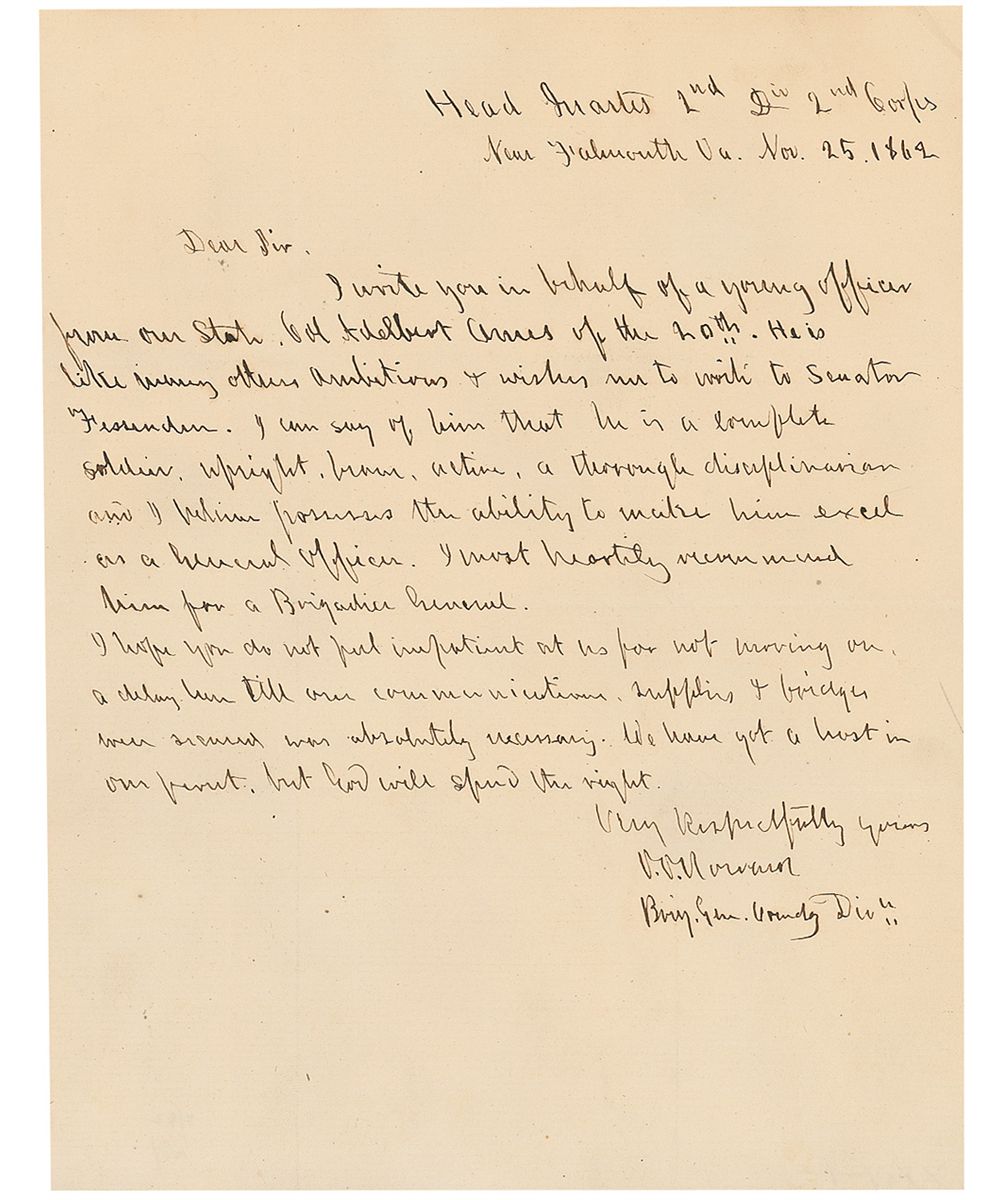 Head Quarters 2nd Div 2nd Corps
Near Falmouth Va. Nov. 25. 1862
Dear Sir.
I write you in behalf of a young officer
from our State. Col Adelbert Ames of the 20th. He is
like many others ambitious & wishes me to write to Senator
Fessenden. I can say of him that he is a complete
soldier, upright, brave, active, a thorough disciplinarian
and I believe possesses the ability to make him excel
as a General Officer. I most heartily recommend
him for a Brigadier General.
I hope you do not feel impatient at us for not moving on,
a delay here till our communications, supplies & bridges
were secured was absolutely necessary. We have got a host in
our front, but God will speed the right.
Very Respectfully yours
O.O. Howard
Brig. Gen. Comdg Divn